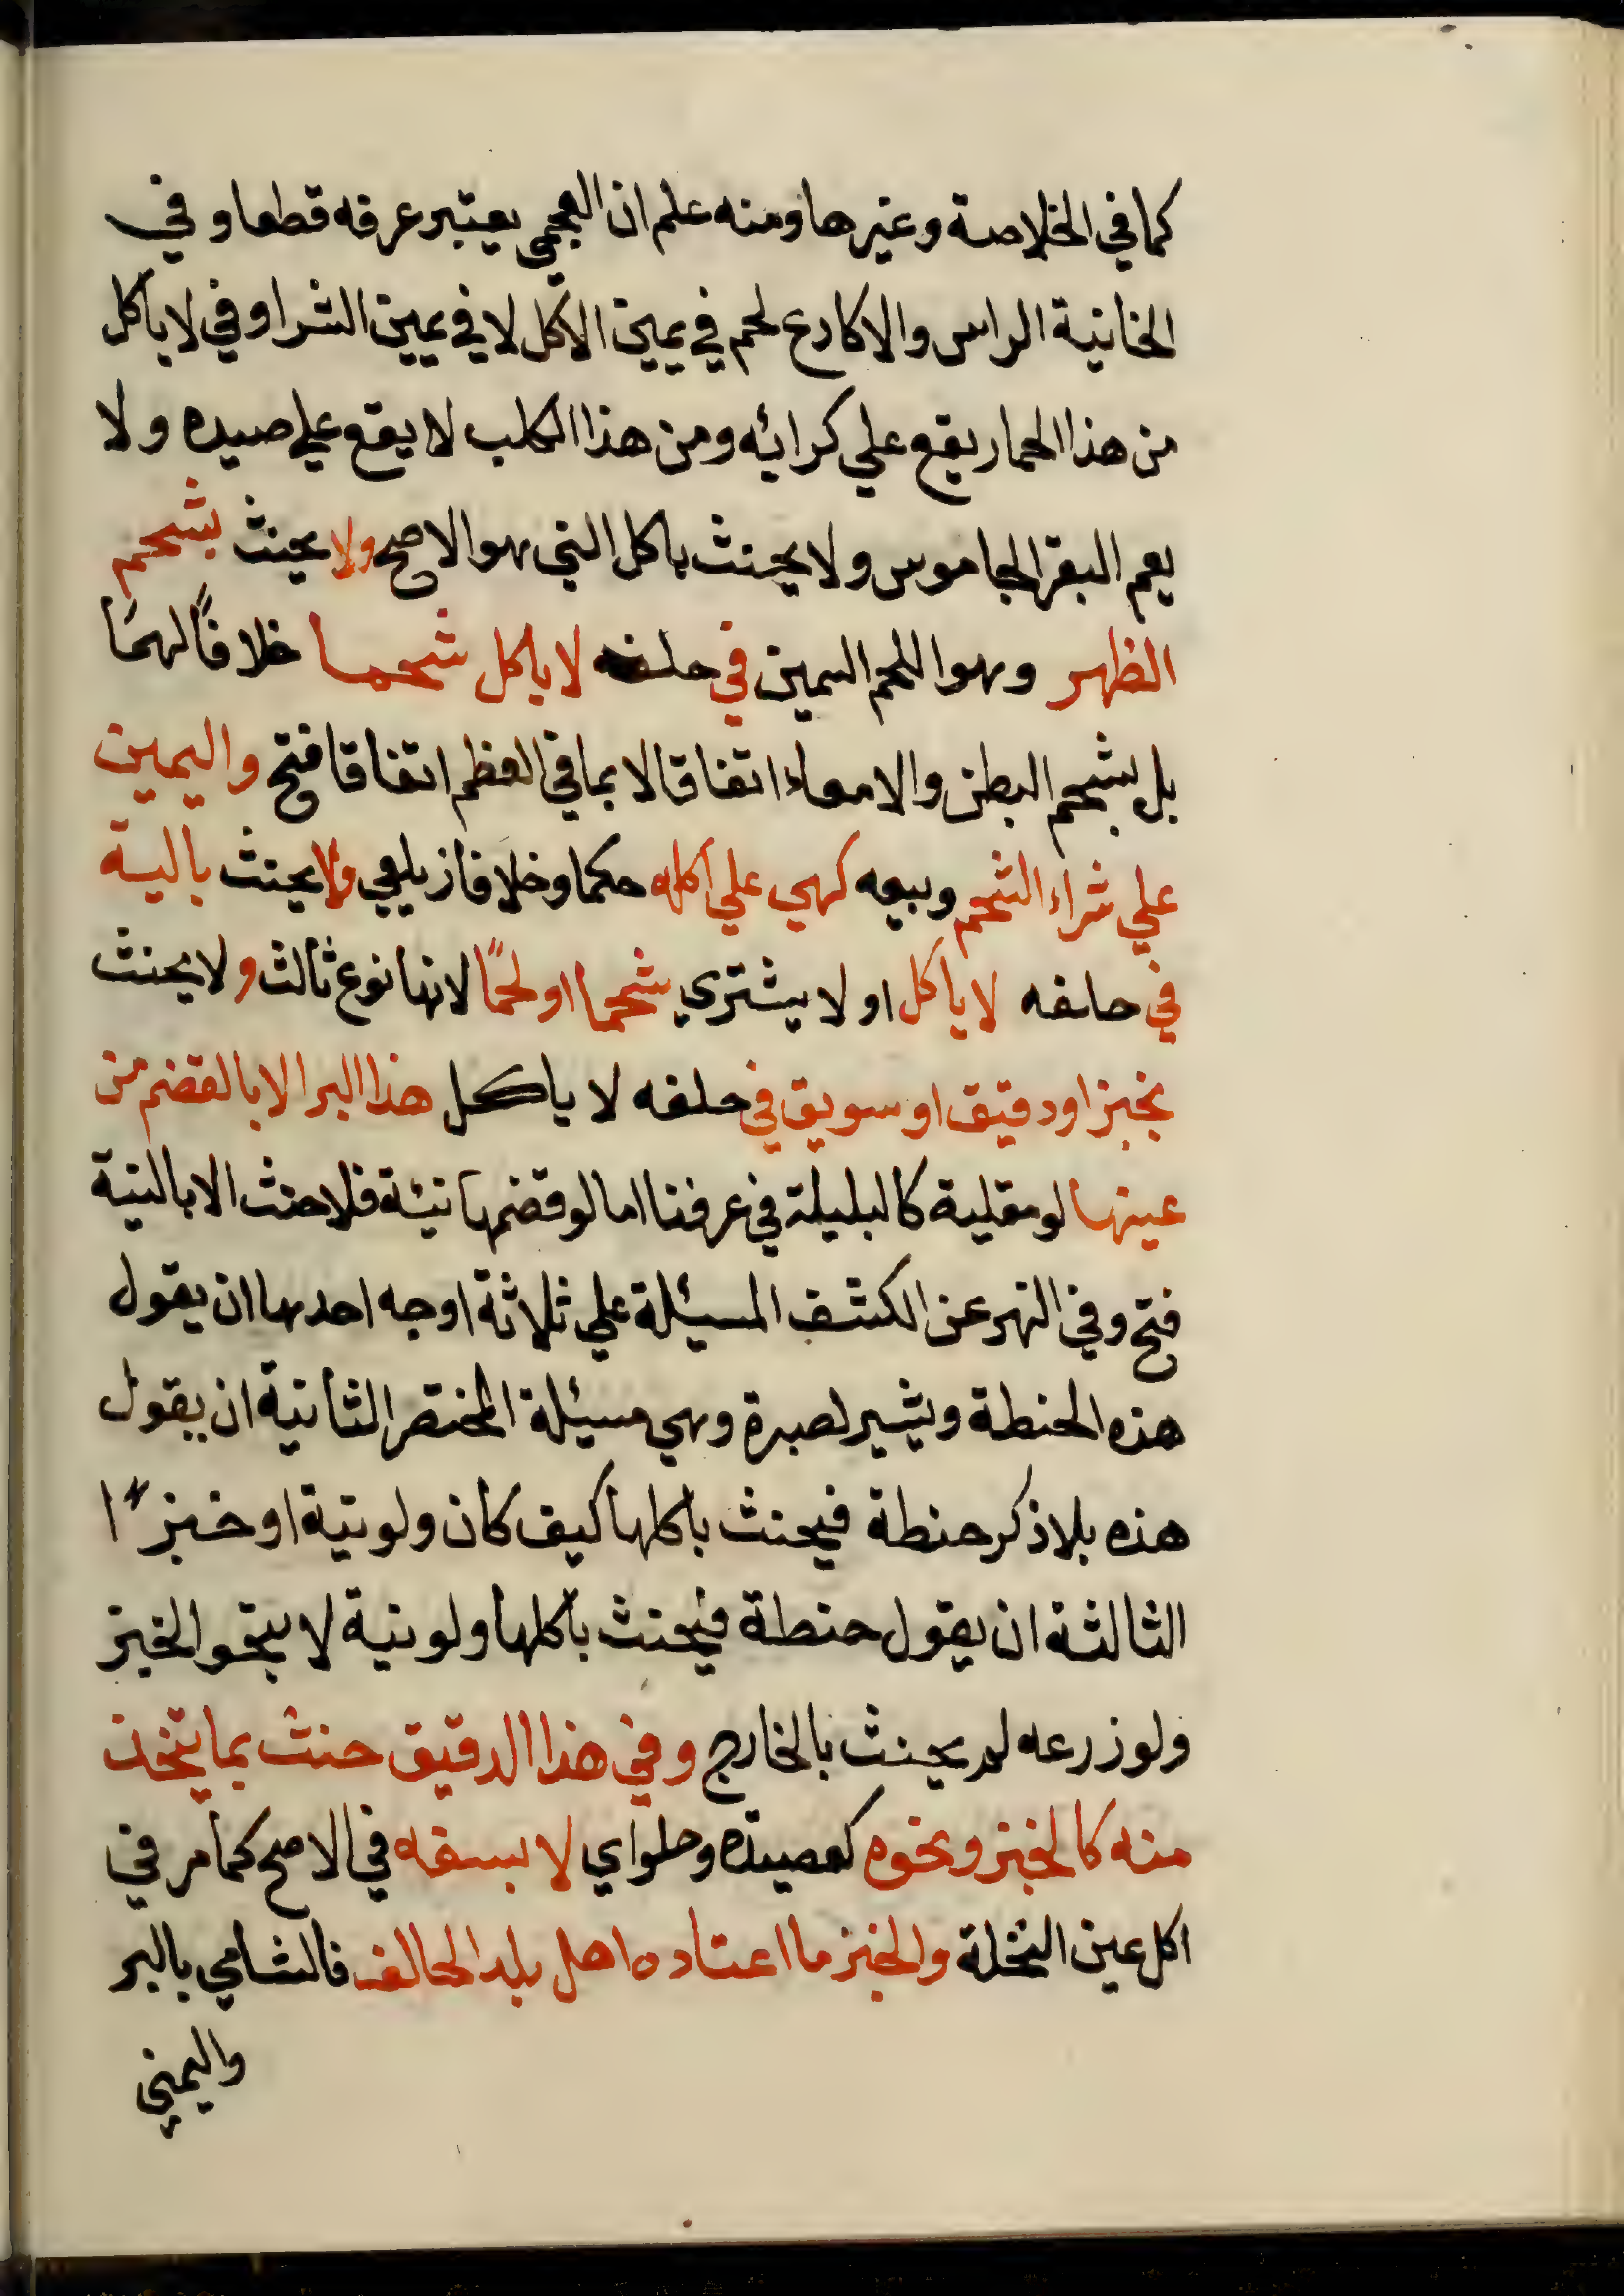 كما في الخلاصة وغيرها ومنه علم ان العجمي يعتبر عرفه قطعا وفي
الخانية الراس والاكارع لحم في يمين الاكل لا في يمين الشرا وفي لا ياكل
من هذا الحمار يقع علي كرائه ومن هذا الكلب لا يقع علي صيده ولا
يعم البقر الجاموس ولا يحنث باكل الني هو الاصح ولا يحنث بشحم
الظهر وهو اللحم السمين في حلفه لا ياكل شحما خلافًا لهما
بل بشحم البطن والامعاء اتفاقا لا بما في العظم اتفاقا فتح واليمين
علي شراء الشحم وبيعه كهي علي اكله حكما وخلافا زيلعي ولا يحنث بالية
في حلفه لا ياكل او لا يشتري شحما او لحمًا لانها نوع ثالث ولا يحنث
بخبز او دقيق او سويق في حلفه لا ياكل هذا البر الا بالقضم من
عينها لو مقلية كالبليلة في عرفنا اما لو قضمها نيئة فلا حنث الا بالنية
فتح وفي النهر عن الكشف المسيئلة علي ثلاثة اوجه احدها ان يقول
هذه الحنطة ويشير لصبرة وهي مسيئلة المختصر الثانية ان يقول
هذه بلا ذكر حنطة فيحنث باكلها كيف كان ولو نية او خبزًا
الثالثة ان يقول حنطة فيحنث باكلها ولو نية لا بنحو الخبز
ولو زرعه لم يحنث بالخارج وفي هذا الدقيق حنث بما يتخذ
منه كالخبز ونحوه كعصيدة وحلواي لا بسفه في الاصح كما مر في
اكل عين النخلة والخبز ما اعتاده اهل بلد الحالف فالشامي بالبر
واليمني